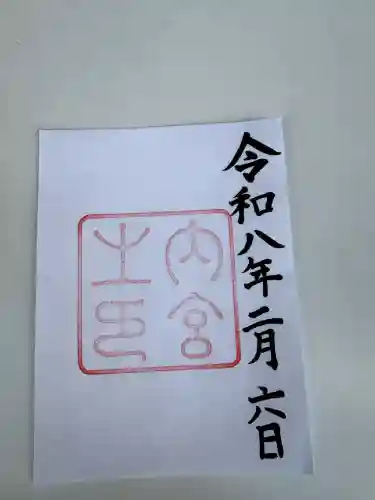 令和八年二月六日
内宮
之印